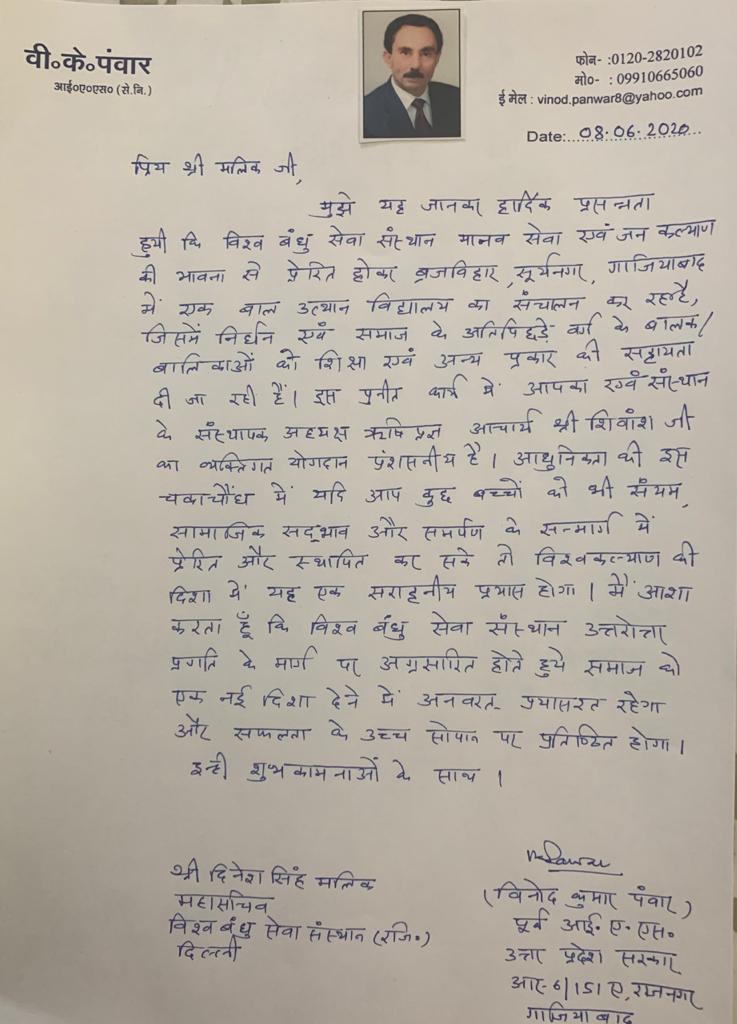 वी०के०पंवार
आई०ए०एस० (से.नि.)
फोन- :0120-2820102
मो०- : 09910665060
ई मेल : vinod.panwar8@yahoo.com
Date:....08.06.2020....
प्रिय श्री मलिक जी,
मुझे यह जानकर हार्दिक प्रसन्नता
हुयी कि विश्व बंधु सेवा संस्थान मानव सेवा एवं जन कल्याण
की भावना से प्रेरित होकर ब्रजविहार, सूर्यनगर, गाजियाबाद
में एक बाल उत्थान विद्यालय का संचालन कर रहा है,
जिसमें निर्धन एवं समाज के अतिपिछड़े वर्ग के बालक/
बालिकाओं को शिक्षा एवं अन्य प्रकार की सहायता
दी जा रही हैं। इस पुनीत कार्य में आपका एवं संस्थान
के संस्थापक अध्यक्ष ऋषिप्रज्ञ आचार्य श्री शिवांश जी
का व्यक्तिगत योगदान प्रंशसनीय है। आधुनिकता की इस
चकाचौंध में यदि आप कुछ बच्चों को भी संयम,
सामाजिक सद्भाव और समर्पण के सन्मार्ग में
प्रेरित और स्थापित कर सके तो विश्वकल्याण की
दिशा में यह एक सराहनीय प्रयास होगा। मैं आशा
करता हूँ कि विश्व बंधु सेवा संस्थान उत्तरोत्तर
प्रगति के मार्ग पर अग्रसारित होते हुये समाज को
एक नई दिशा देने में अनवरत- प्रयासरत रहेगा
और सफलता के उच्च सोपान पर प्रतिष्ठित होगा।
इन्ही शुभकामनाओं के साथ।
श्री दिनेश सिंह मलिक
महासचिव
विश्व बंधु सेवा संस्थान (रजि०)
दिल्ली
(विनोद कुमार पंवार)
पूर्व आई. ए. एस.
उत्तर प्रदेश सरकार
आर-6/151 ए, राजनगर
गाजियाबाद